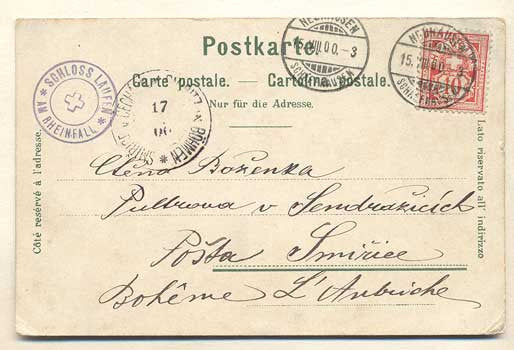 Postkarte.
Carte postale. — Cartolina postale.
Nur für die Adresse.
NEUHAUSEN
15.VIII.00.-3
SCHAFFHAUSEN
NEUHAUSEN
15.VIII.00.-3
SCHAFFHAUSEN
10
* SCHLOSS LAUFEN *
AM RHEINFALL
SMIŘICE
17
00
BÖHMEN
Côté reservé à l'adresse.
Lato riservato all' indirizzo
Ctěná Boženka
Pultrova v Sendražicích
Pošta Smiřice
Bohême L'Autriche